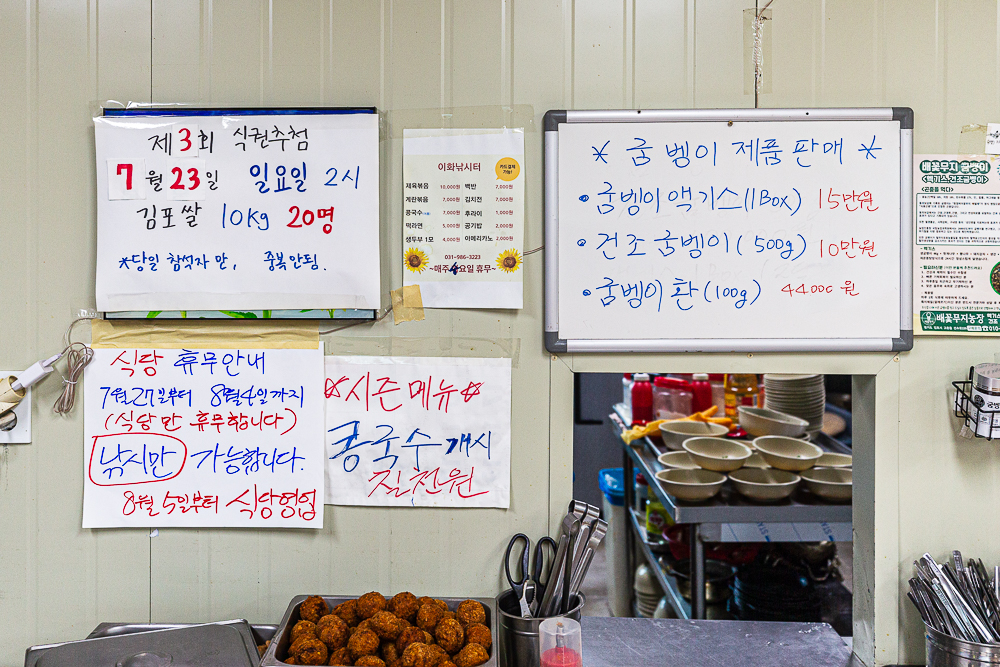 제3회 식권추첨
7월 23일 일요일 2시
김포쌀 10kg 20명
*당일 참석자 만, 중복안됨.
이화낚시터
카드결제 가능!
제육볶음 10,000원 백반 7,000원
계란볶음 7,000원 김치전 7,000원
콩국수 7,000원 후라이 1,000원
떡라면 5,000원 공기밥 2,000원
생두부 1모 4,000원 아메리카노 2,000원
031-986-3223
~매주 4요일 휴무~
* 굼벵이 제품판매 *
• 굼벵이 액기스(1Box) 15만원
• 건조 굼벵이(500g) 10만원
• 굼벵이 환(100g) 44000원
배꽃무지 굼벵이
<엑기스.건조굼벵이>
배꽃무지농장
식당 휴무안내
7월27일부터 8월4일까지
(식당만 휴무합니다)
낚시만 가능합니다.
8월 5일부터 식당영업
*시즌메뉴*
콩국수 개시
칠천원